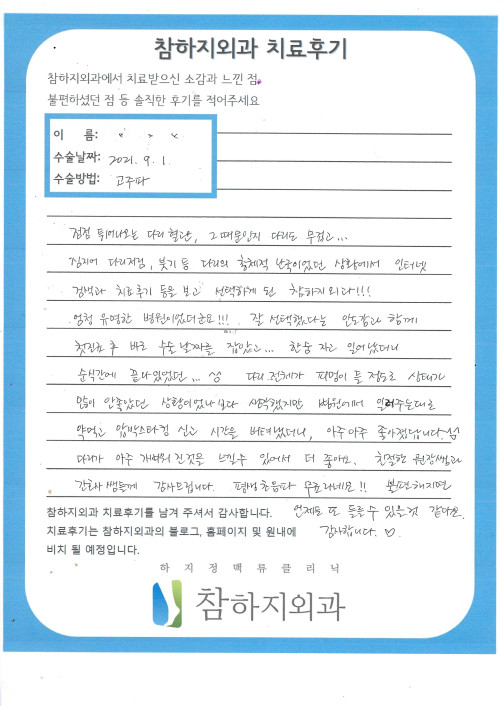 참하지외과 치료후기
참하지외과에서 치료받으신 소감과 느낀 점,
불편하셨던 점 등 솔직한 후기를 적어주세요
이 름:
수술날짜: 2021. 9. 1.
수술방법: 고주파
점점 튀어나오는 다리 혈관, 그 때문인지 다리도 무겁고...
심지어 다리저림, 붓기 등 다리의 총체적 난국이었던 상황에서 인터넷
검색과 치료후기 등을 보고 선택하게 된 참하지외과!!!
엄청 유명한 병원이었더군요!!! 잘 선택했다는 안도감과 함께
첫진료 후 바로 수술 날짜를 잡았고... 한숨 자고 일어났더니
순식간에 끝나있었던... 다리 전체가 피멍이 들 정도로 상태가
많이 안좋았던 상황이었나보다 생각했지만 병원에서 알려주는대로
약먹고 압박스타킹 신고 시간을 버텨냈더니, 아주아주 좋아졌답니다.
다리가 아주 가벼워진것을 느낄수 있어서 더 좋아요. 친절한 원장쌤과
간호사쌤들께 감사드립니다. 평생 초음파 무료라네요!! 불편해지면
참하지외과 치료후기를 남겨 주셔서 감사합니다. 언제든 또 들를수 있을것 같아요.
치료후기는 참하지외과의 블로그, 홈페이지 및 원내에 감사합니다. ♡.
비치 될 예정입니다.
하지정맥류클리닉
참하지외과